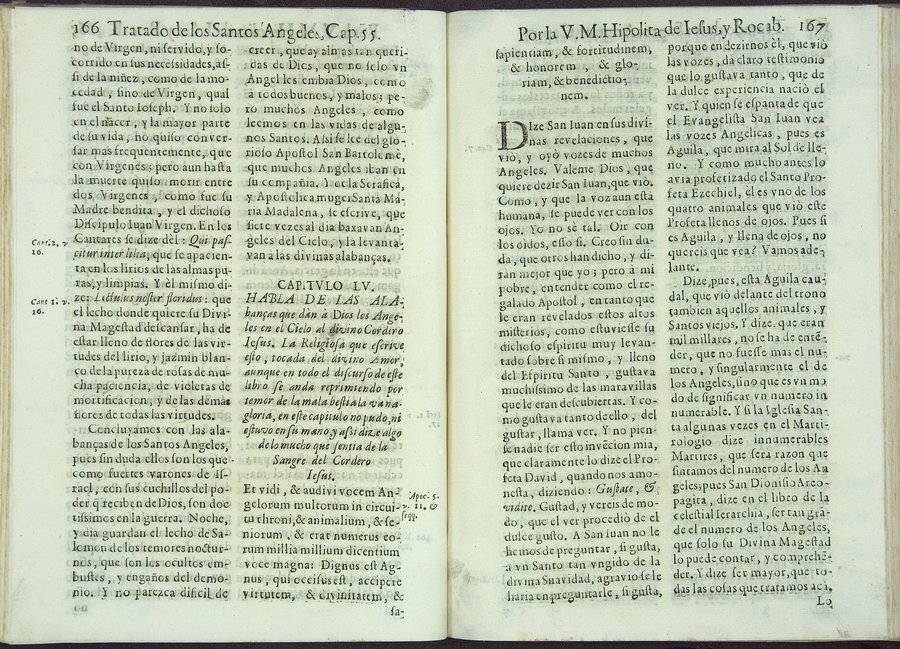 166 Tratado de los Santos Angeles, Cap. 55.
no de Virgen, ni servido, y so-
corrido en sus necessidades, as-
si de la niñez, como de la mo-
cedad, sino de Virgen, qual
fue el Santo Ioseph. Y no solo
en el nacer, y la mayor parte
de su vida, no quiso conver-
sar mas frequentemente, que
con Virgenes; pero aun hasta
la muerte quiso morir entre
dos Virgenes, como fue su
Madre bendita, y el dichoso
Discipulo Iuan Virgen. En los
Cant. 2. v. 16.
Cantares se dize dèl: Qui pas-
citur inter lilia, que se apacien-
ta en los lirios de las almas pu-
ras, y limpias. Y èl mismo di-
Cant 1. v. 16.
ze: Lectulus noster floridus: que
el lecho donde quiere su Divi-
na Magestad descansar, ha de
estar lleno de flores de las vir-
tudes del lirio, y jazmin blan-
co de la pureza de rosas de mu-
cha paciencia, de violetas de
mortificacion, y de las demàs
flores de todas las virtudes.
Concluyamos con las ala-
banças de los Santos Angeles,
pues sin duda ellos son los que
como fuertes varones de Is-
rael, con sus cuchillos del po-
der q̃ reciben de Dios, son doc
tissimos en la guerra. Noche,
y dia guardan el lecho de Sa-
lomon de los temores noctur-
nos, que son los ocultos em-
bustes, y engaños del demo-
nio. Y no parezca dificil de
creer, que ay almas tan queri-
das de Dios, que no solo vn
Angel les embia Dios, como
a todos buenos, y malos; pe-
ro muchos Angeles, como
leemos en las vidas de algu-
nos Santos. Assi se lee del glo-
rioso Apostol San Bartolome,
que muchos Angeles iban en
su compañia. Y de la Serafica,
y Apostolica muger Santa Ma-
ria Madalena, se escrive, que
siete vezes al dia baxavan An-
geles del Cielo, y la levanta-
van a las divinas alabanças.
CAPITVLO LV.
HABLA DE LAS ALA-
banças que dàn à Dios los Ange-
les en el Cielo al divino Cordero
Iesus. La Religiosa que escrive
esto, tocada del divino Amor,
aunque en todo el discurso de este
libro se anda reprimiendo por
temor de la mala bestia la vana-
gloria, en este capitulo no pudo, ni
estuvo en su mano, y assi dize algo
de lo mucho que sentia de la
Sangre del Cordero
Iesus.
Et vidi, & audivi vocem An-
Apoc. 5. v. 11. & seqq.
gelorum multorum in circui-
tu throni, & animalium, & se-
niorum, & erat numerus eo-
rum millia millium dicentium
voce magna: Dignus est Ag-
nus, qui occisus est, accipere
virtutem, & divinitatem, &
sa-
Por la V. M. Hipolita de Iesus, y Rocab. 167
sapientiam, & fortitudinem,
& honorem, & glo-
riam, & benedictio-
nem.
Dize San Iuan en sus divi-
nas revelaciones, que
viò, y oyò vozes de muchos
Angeles. Valeme Dios, que
quiere dezir San Iuan, que viò.
Como, y que la voz aun esta
humana, se puede ver con los
ojos. Yo no sè tal. Oir con
los oidos, esso si. Creo sin du-
da, que otros han dicho, y di-
ràn mejor que yo; pero à mi
pobre, entender como el re-
galado Apostol, en tanto que
le eran revelados estos altos
misterios, como estuviesse su
dichoso espiritu muy levan-
tado sobre si mismo, y lleno
del Espiritu Santo, gustava
muchissimo de las maravillas
que le eran descubiertas. Y co-
mo gustava tanto de ello, del
gustar, llama ver. Y no pien-
se nadie ser esto invẽcion mia,
que claramente lo dize el Pro-
feta David, quando nos amo-
nesta, diziendo: Gustate, &
vidite. Gustad, y vereis de mo-
do, que el ver procediò de el
dulce gusto. A San Iuan no le
hemos de preguntar, si gusta,
a vn Santo tan vngido de la
divina Suavidad, agravio se le
haria en preguntarle, si gusta,
porque en dezirnos èl, que viò
las vozes, da claro testimonio
que lo gustava tanto, que de
la dulce experiencia naciò el
ver. Y quien se espanta de que
el Evangelista San Iuan vea
las vozes Angelicas, pues es
Aguila, que mira al Sol de lle-
no. Y como mucho antes lo
avia profetizado el Santo Pro-
feta Ezechiel, èl es vno de los
quatro animales que viò este
Profeta llenos de ojos. Pues si
es Aguila, y llena de ojos, no
quereis que vea? Vamos ade-
lante.
Dize, pues, esta Aguila cau-
dal, que viò delante del trono
tambien aquellos animales, y
Santos viejos. Y dize, que eran
mil millares, no se ha de entẽ-
der, que no fuesse mas el nu-
mero, y singularmente el de
los Angeles, sino que es vn mo
do de significar vn numero in
numerable. Y si la Iglesia San-
ta algunas vezes en el Marti-
rologio dize innumerables
Martires, que serà razon que
sintamos del numero de los An
geles; pues San Dionisio Areo-
pagita, dize en el libro de la
celestial Ierarchia, ser tan grã-
de el numero de los Angeles,
que solo su Divina Magestad
lo puede contar, y comprehẽ-
der. Y dize ser mayor, que to-
das las cosas que tratamos acà.
Lo